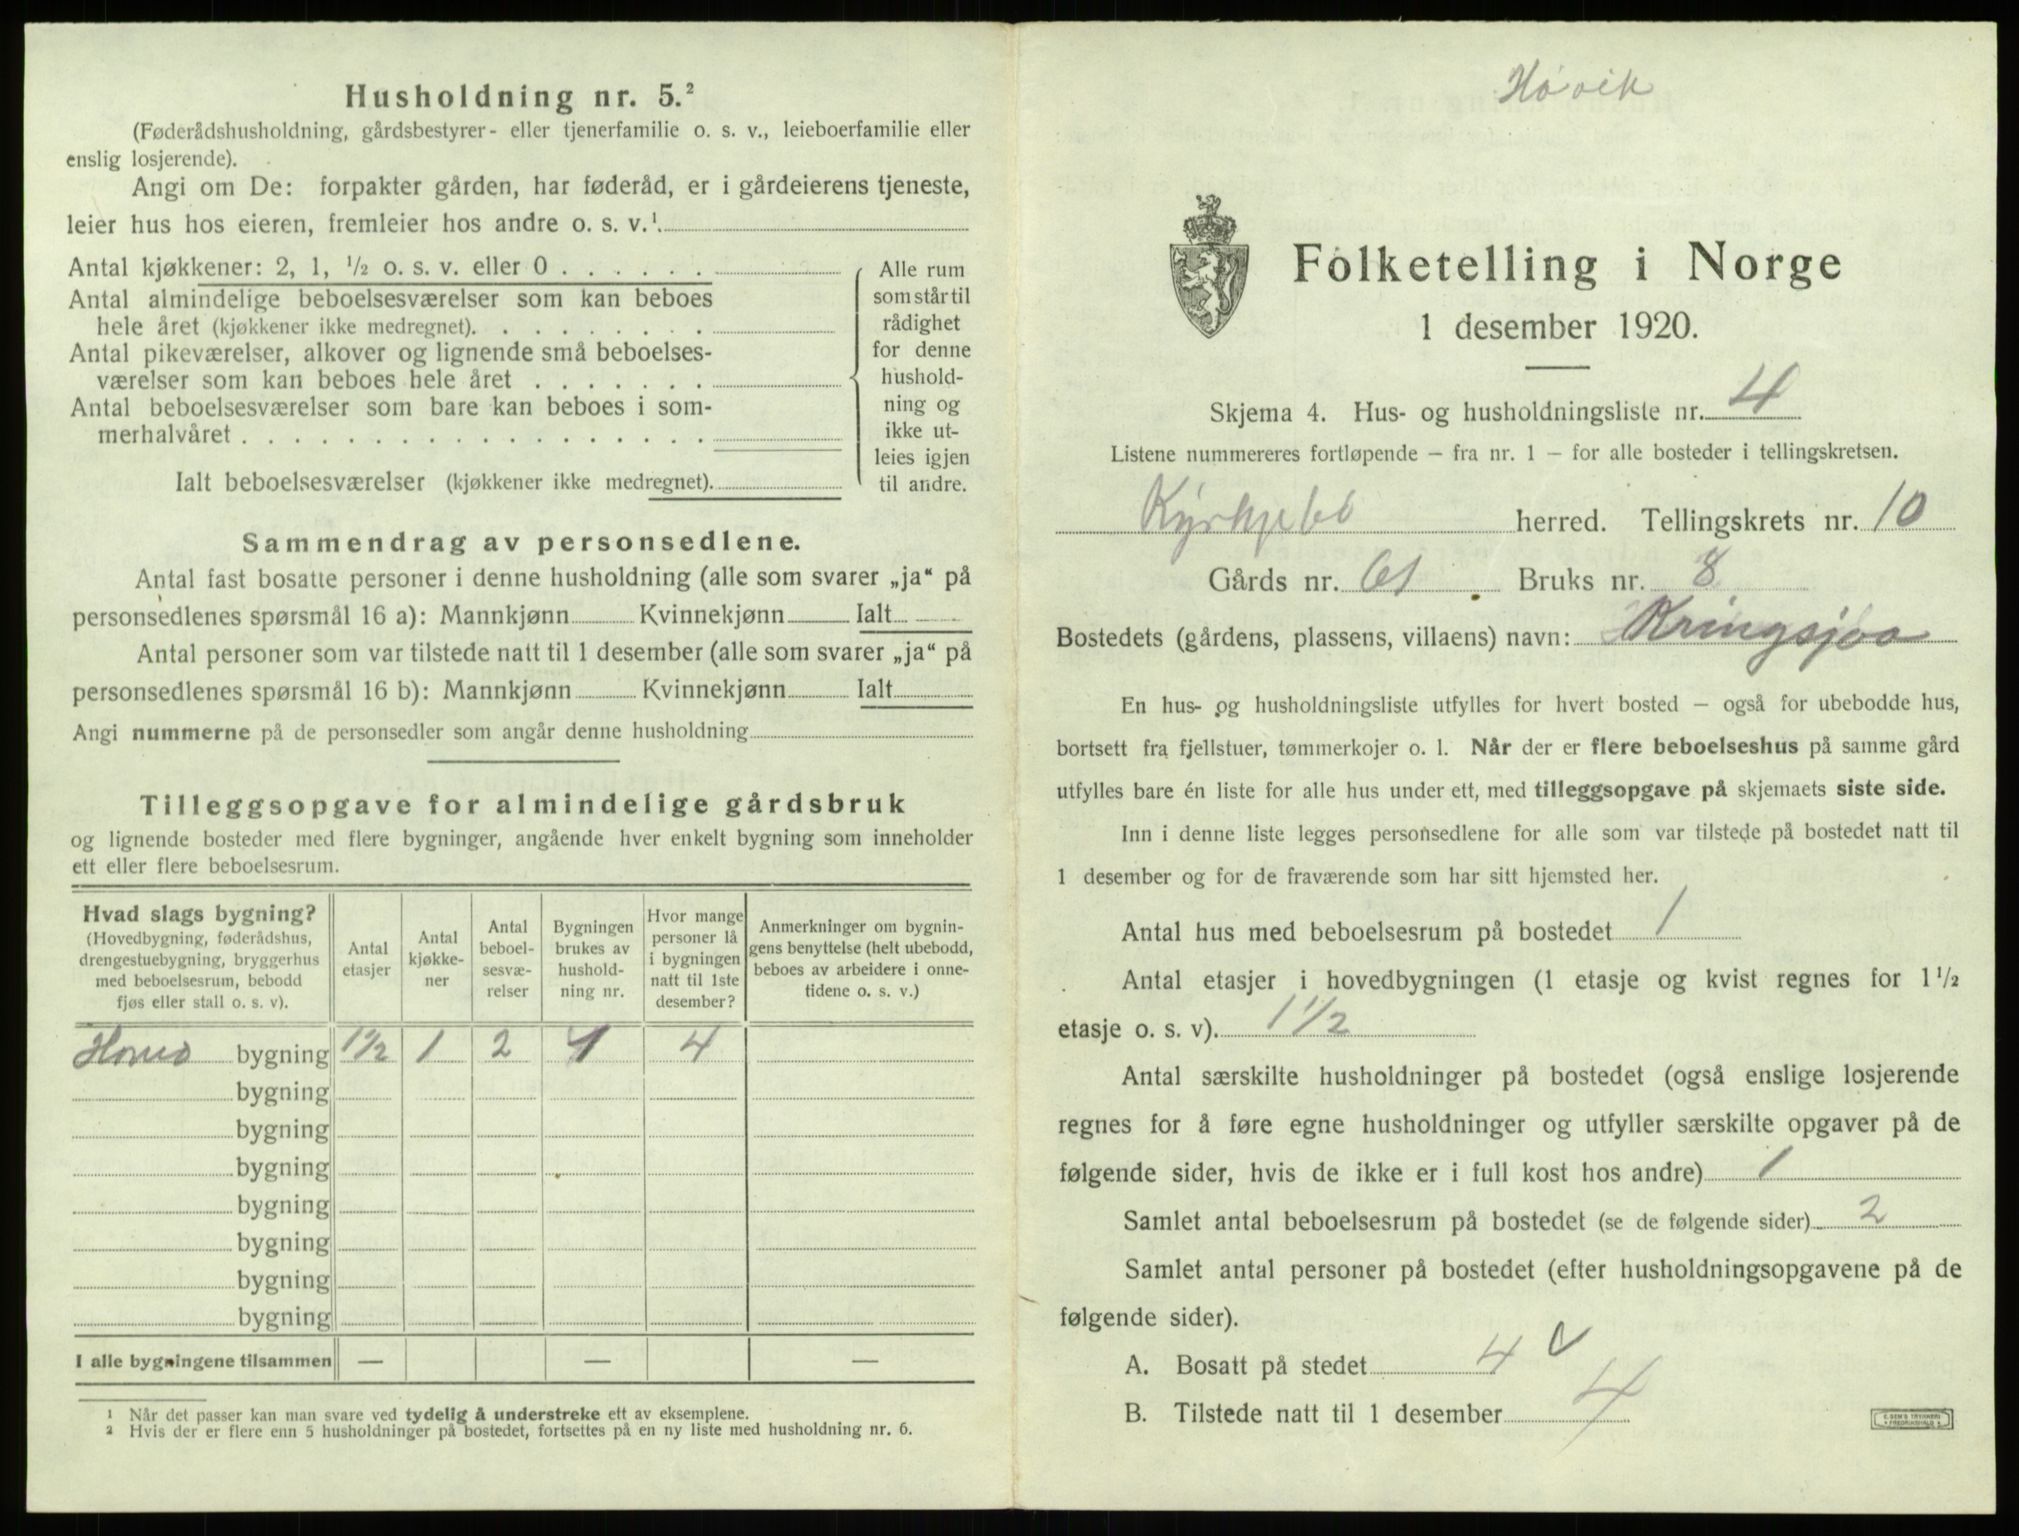 Husholdning nr. 5.²
(Føderådshusholdning, gårdsbestyrer- eller tjenerfamilie o. s. v., leieboerfamilie eller
enslig losjerende).
Angi om De: forpakter gården, har føderåd, er i gårdeierens tjeneste,
leier hus hos eieren, fremleier hos andre o. s. v.¹
Antal kjøkkener: 2, 1, ½ o. s. v. eller 0 . . . . . .
Antal almindelige beboelsesværelser som kan beboes
hele året (kjøkkener ikke medregnet). . . . . . . . .
Antal pikeværelser, alkover og lignende små beboelses-
værelser som kan beboes hele året . . . . . . .
Antal beboelsesværelser som bare kan beboes i som-
merhalvåret . . . . . . . . . . . . . . . . . .
Alle rum
som står til
rådighet
for denne
hushold-
ning og
ikke ut-
leies igjen
til andre.
Ialt beboelsesværelser (kjøkkener ikke medregnet).
Sammendrag av personsedlene.
Antal fast bosatte personer i denne husholdning (alle som svarer „ja“ på
personsedlenes spørsmål 16 a): Mannkjønn Kvinnekjønn Ialt
Antal personer som var tilstede natt til 1 desember (alle som svarer „ja“ på
personsedlenes spørsmål 16 b): Mannkjønn Kvinnekjønn Ialt
Angi nummerne på de personsedler som angår denne husholdning
Tilleggsopgave for almindelige gårdsbruk
og lignende bosteder med flere bygninger, angående hver enkelt bygning som inneholder
ett eller flere beboelsesrum.
Hvad slags bygning?
(Hovedbygning, føderådshus,
drengestuebygning, bryggerhus
med beboelsesrum, bebodd
fjøs eller stall o. s. v).
Antal
etasjer
Antal
kjøkke-
ner
Antal
beboel-
sesvæ-
relser
Bygningen
brukes av
hushold-
ning nr.
Hvor mange
personer lå
i bygningen
natt til 1ste
desember?
Anmerkninger om bygnin-
gens benyttelse (helt ubebodd,
beboes av arbeidere i onne-
tidene o. s. v.)
Hoved bygning 1½ 1 2 1 4
bygning
bygning
bygning
bygning
bygning
bygning
bygning
I alle bygningene tilsammen — — —
¹ Når det passer kan man svare ved tydelig å understreke ett av eksemplene.
² Hvis der er flere enn 5 husholdninger på bostedet, fortsettes på en ny liste med husholdning nr. 6.
Høvik
Folketelling i Norge
1 desember 1920.
Skjema 4. Hus- og husholdningsliste nr. 4
Listene nummereres fortløpende — fra nr. 1 — for alle bosteder i tellingskretsen.
Kyrkjebö herred. Tellingskrets nr. 10
Gårds nr. 61 Bruks nr. 8
Bostedets (gårdens, plassens, villaens) navn: Kringsjaa
En hus- og husholdningsliste utfylles for hvert bosted — også for ubebodde hus,
bortsett fra fjellstuer, tømmerkojer o. l. Når der er flere beboelseshus på samme gård
utfylles bare én liste for alle hus under ett, med tilleggsopgave på skjemaets siste side.
Inn i denne liste legges personsedlene for alle som var tilstede på bostedet natt til
1 desember og for de fraværende som har sitt hjemsted her.
Antal hus med beboelsesrum på bostedet 1
Antal etasjer i hovedbygningen (1 etasje og kvist regnes for 1½
etasje o. s. v). 1½
Antal særskilte husholdninger på bostedet (også enslige losjerende
regnes for å føre egne husholdninger og utfyller særskilte opgaver på de
følgende sider, hvis de ikke er i full kost hos andre) 1
Samlet antal beboelsesrum på bostedet (se de følgende sider) 2
Samlet antal personer på bostedet (efter husholdningsopgavene på de
følgende sider).
A. Bosatt på stedet 4 v
B. Tilstede natt til 1 desember 4
E. SEM'S TRYKKERI
FREDRIKSHALD